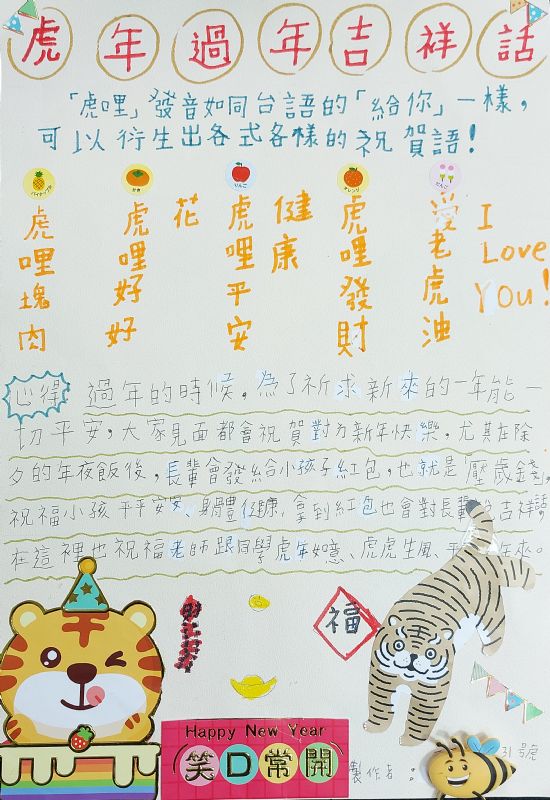 虎年過年吉祥話
「虎哩」發音如同台語的「給你」一樣，
可以衍生出各式各樣的祝賀語！
パイナップル
かき
りんご
オレンジ
虎哩塊肉
虎哩好好
花
虎哩平安
健康
虎哩發財
愛老虎油
I
Love
You!
心得
過年的時候，為了祈求新來的一年能一
切平安，大家見面都會祝賀對方新年快樂，尤其在除
夕的年夜飯後，長輩會發給小孩子紅包，也就是壓歲錢，
祝福小孩平平安安、身體健康，拿到紅包也會對長輩吉祥話，
在這裡也祝福老師跟同學虎年如意、虎虎生風、平年來。
福
Happy New Year
笑口常開
製作者：
31號